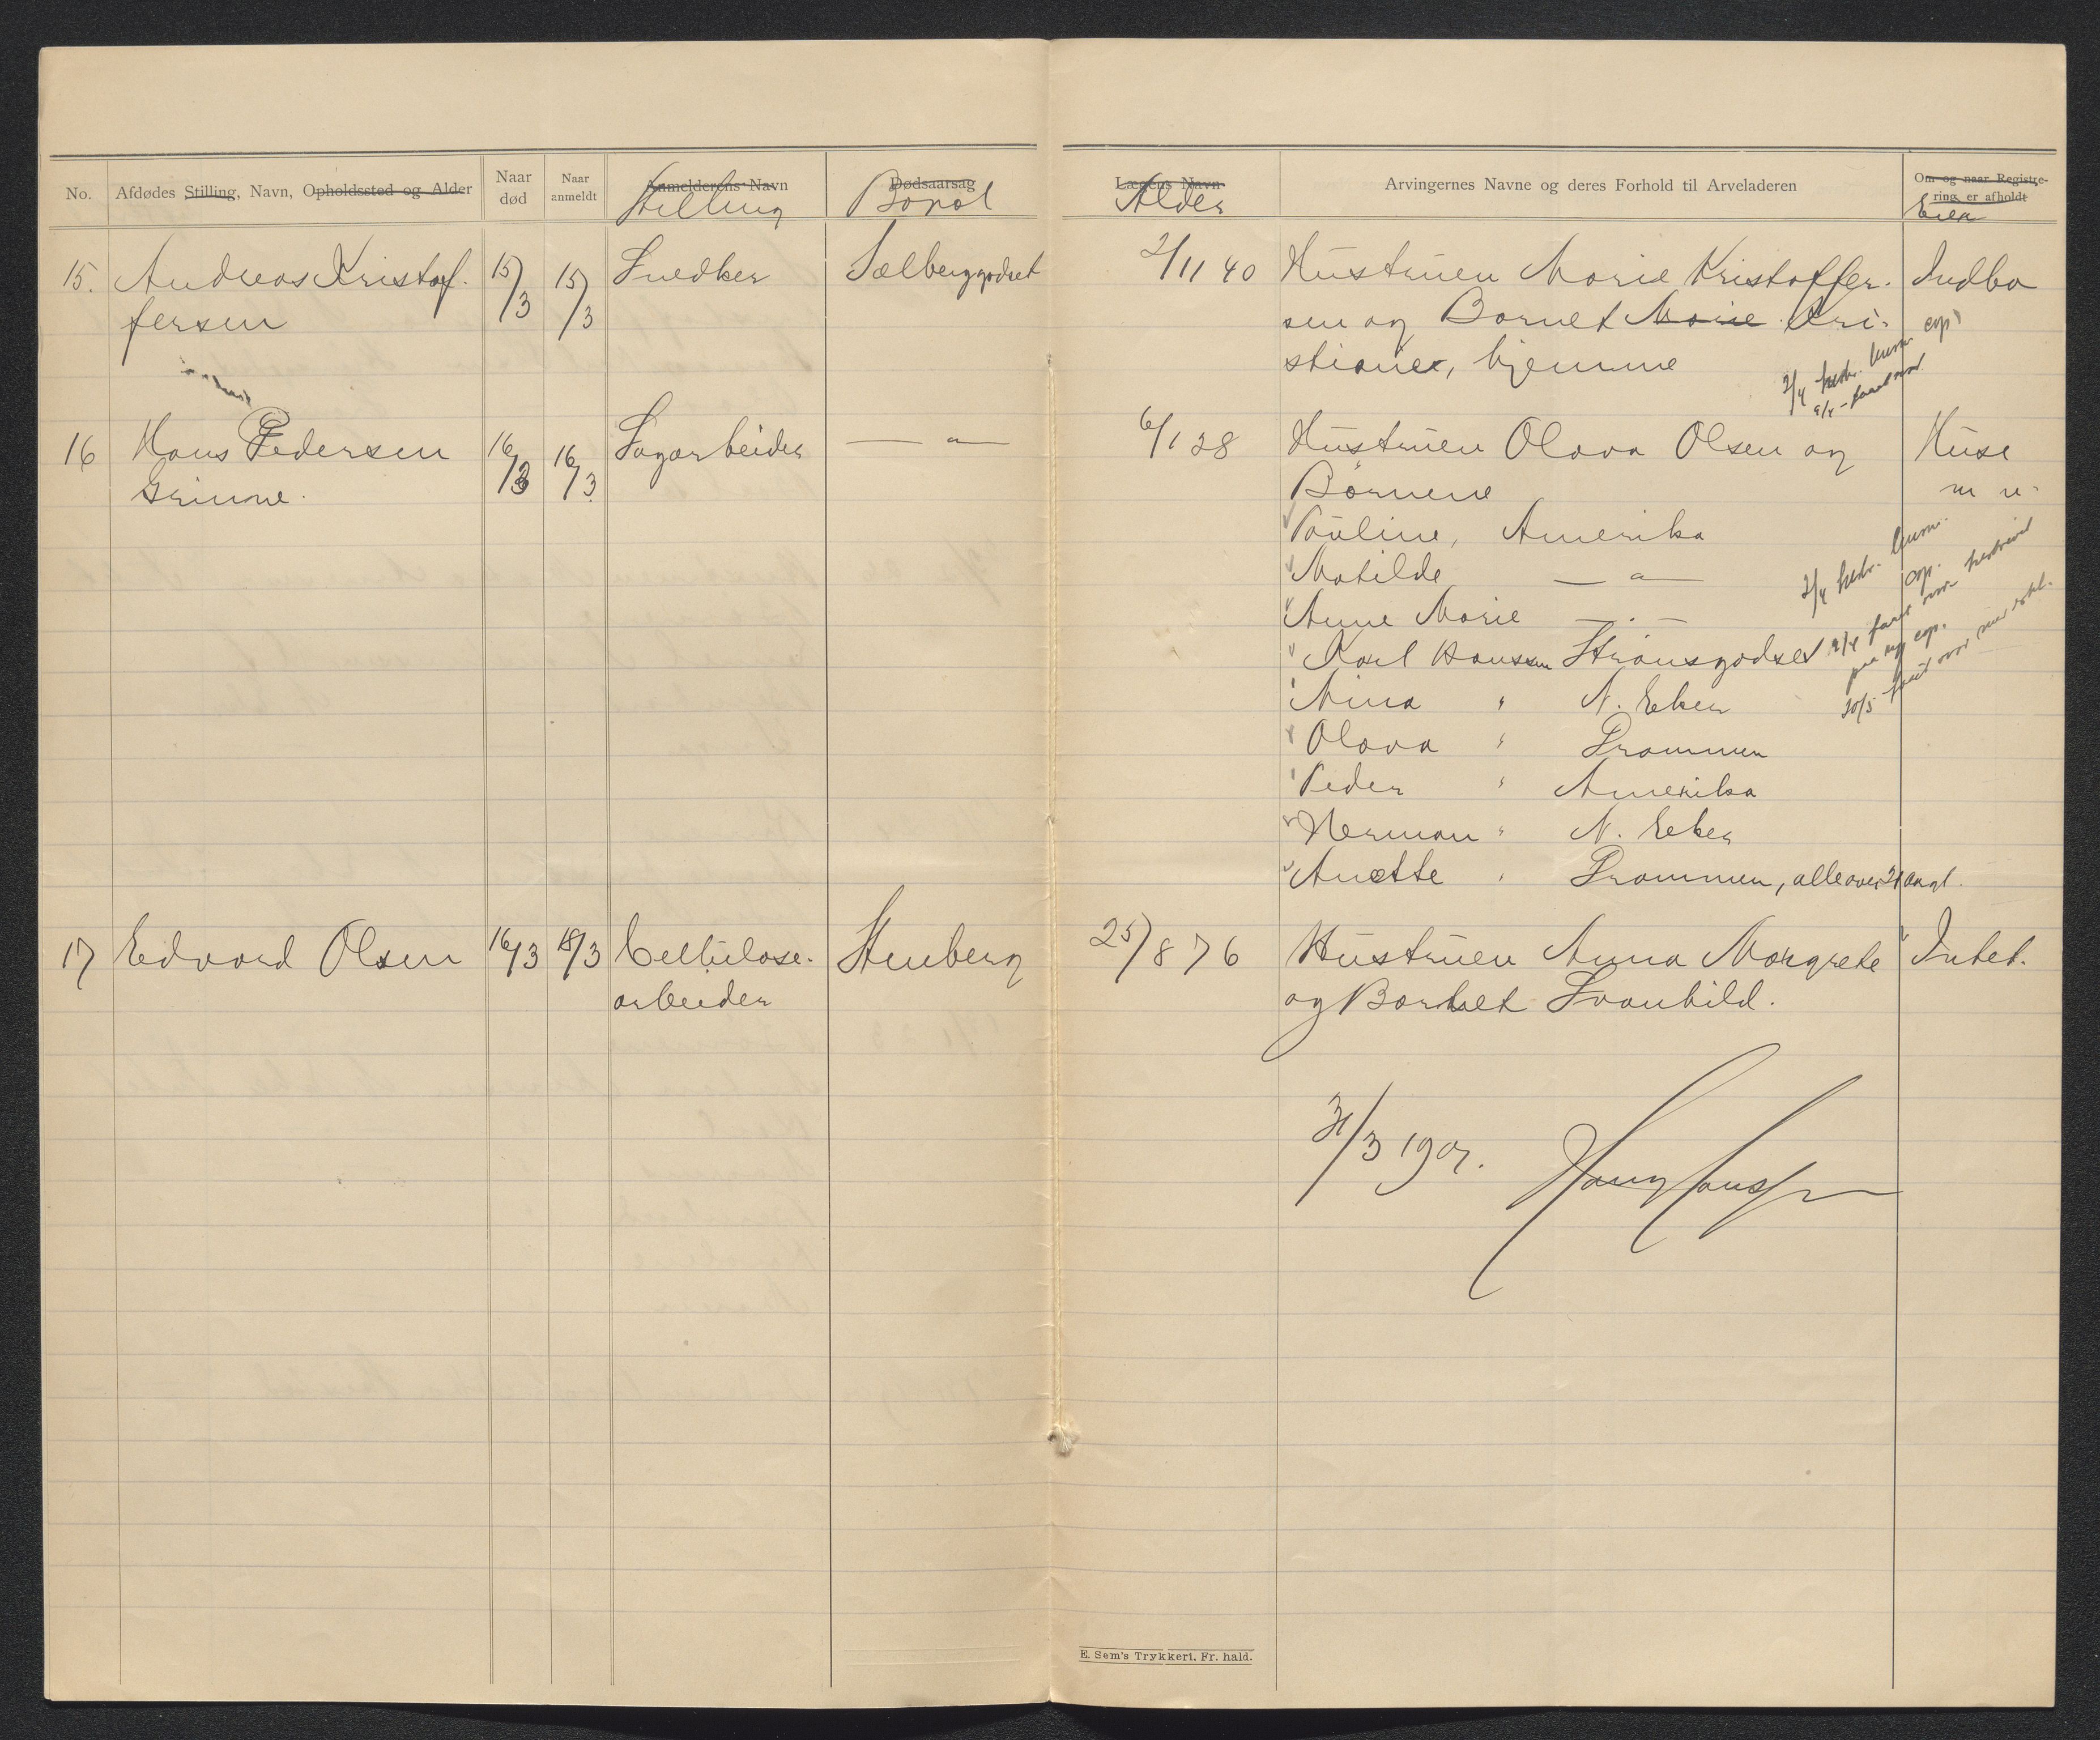 No. Afdødes Stilling, Navn, Opholdssted og Alder
Naar død
Naar anmeldt
Anmelderens Navn
Stilling
Dødsaarsag
Bopæl
Lægens Navn
Alder
Arvingernes Navne og deres Forhold til Arveladeren
Om og naar Registre-
ring er afholdt
15. Andreas Kristof- 15/3 15/3 Snedker Sælberggodset 2/11 40 Hustruen Marie Kristoffer- Indbo
fersen sen og Barnet Marie Kri-
stiane, hjemme
16 Hans Pedersen 16/3 16/3 Sagarbeider — " — 6/1 28 Hustruen Olava Olsen og Huse
Grinne. Børnene
Pauline, Amerika
Matilde — " —
Anne Marie — " —
Karl Hanssen Strømsgodset
Nina " N. Eker
Olava " Drammen
Peder " Amerika
Herman " N. Eker
Anette " Drammen, alle over 21 aar gl.
17 Edvard Olsen 16/3 18/3 Cellulose- Stenberg 25/8 76 Hustruen Anna Margrete Intet.
arbeider og Barnet Svanhild.
31/3 1907.
E. Sem's Trykkeri, Fr. hald.